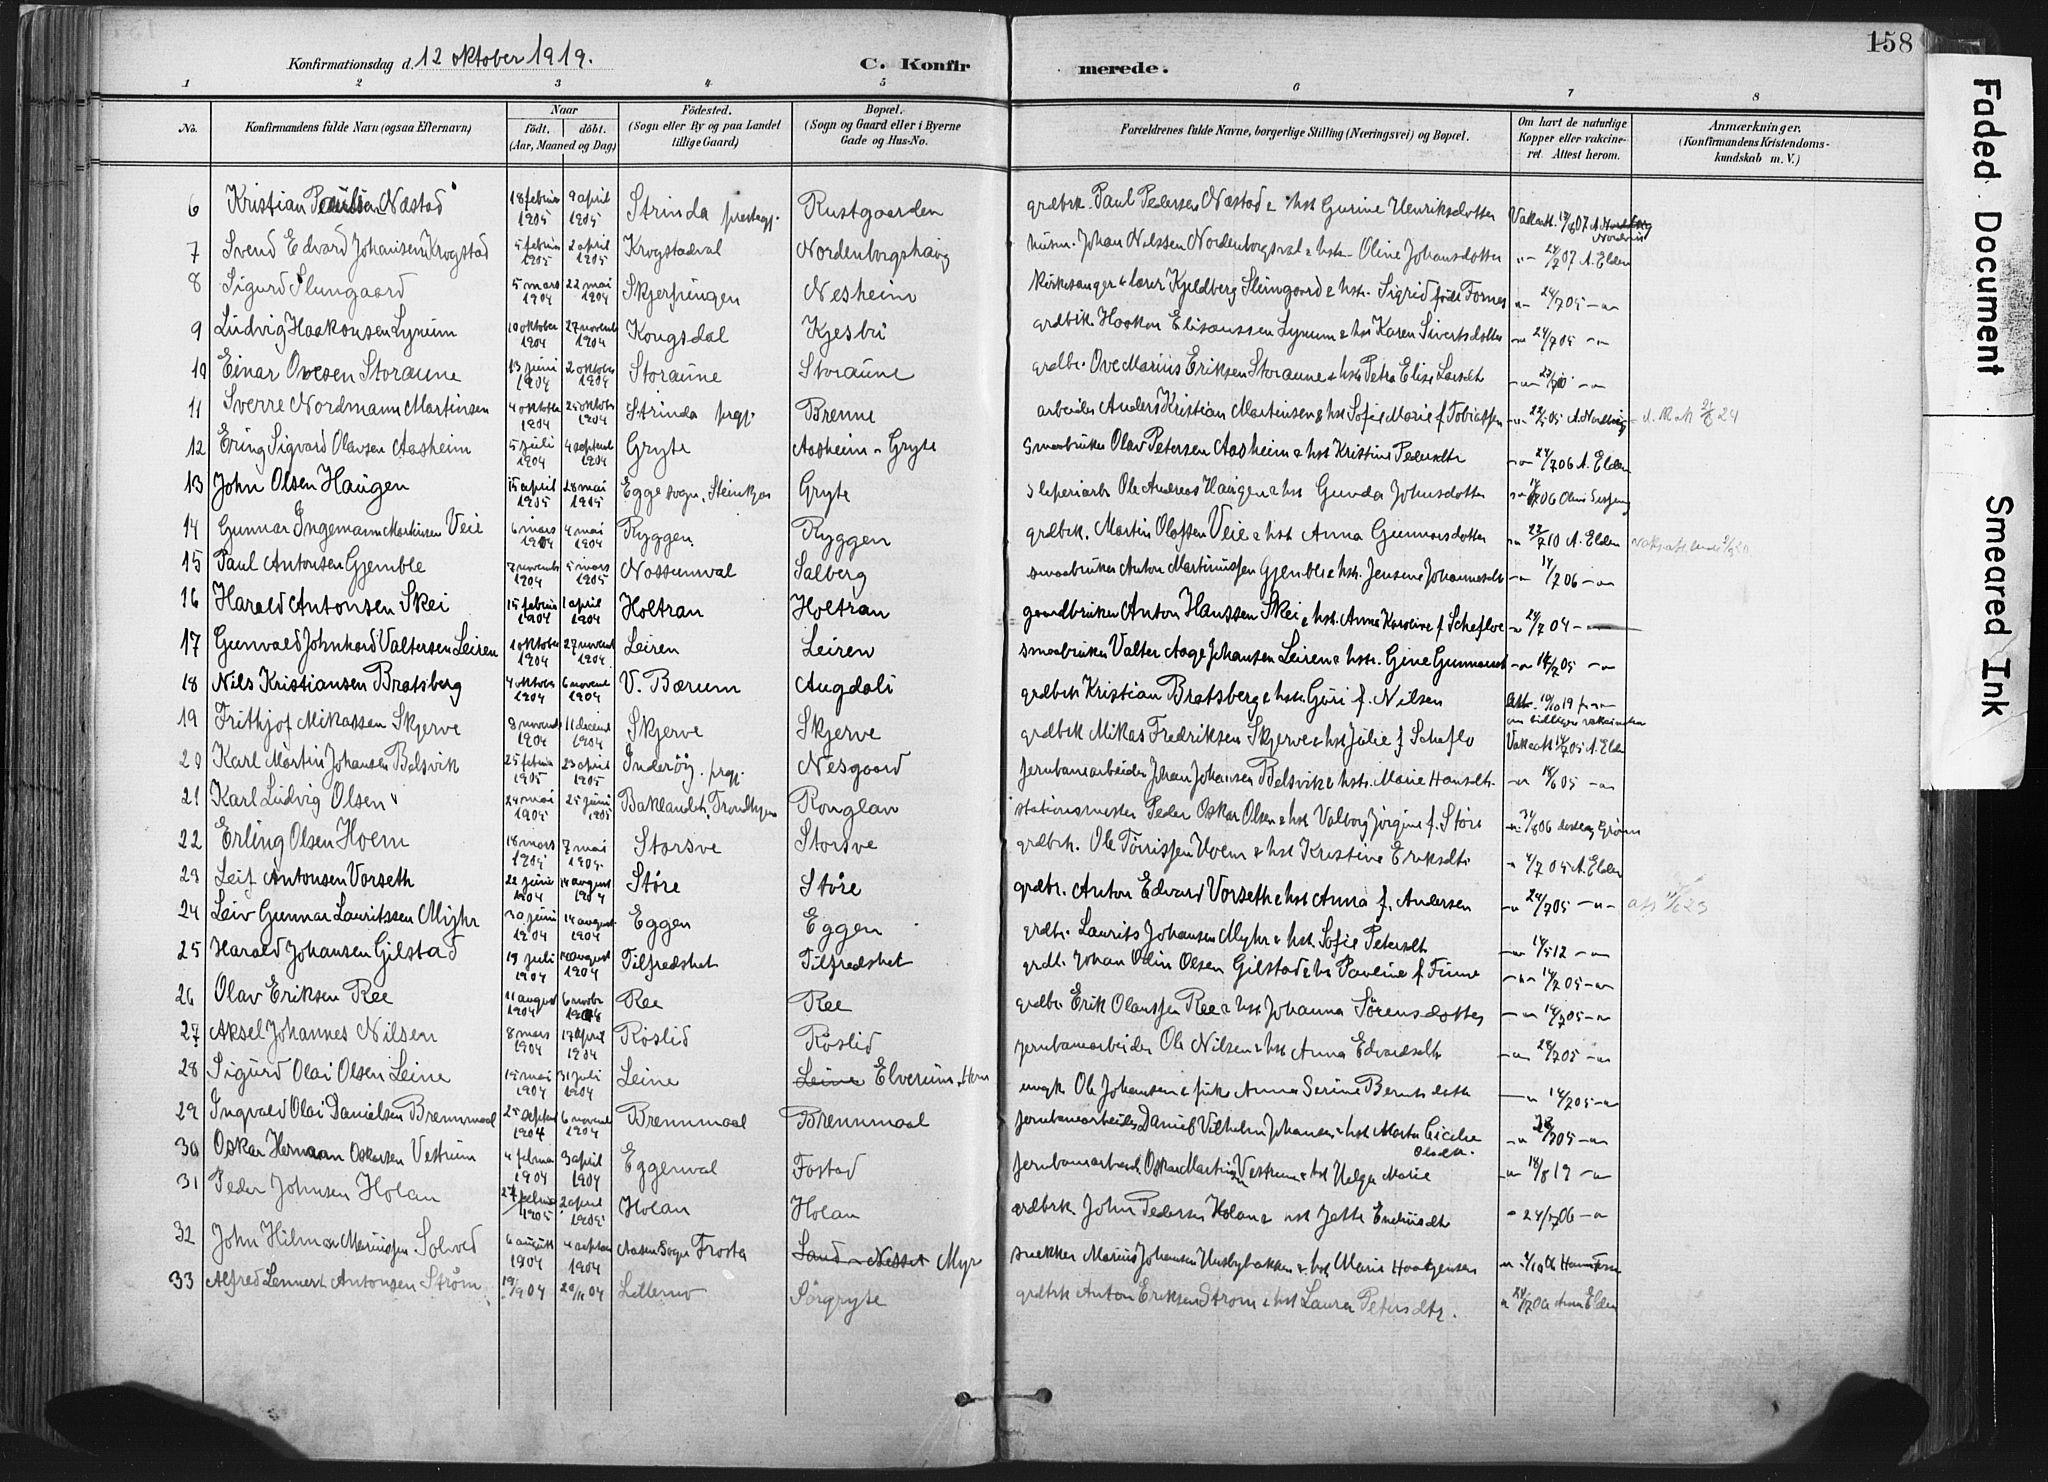 158
Konfirmationsdag d. 12 oktober 1919.
C. Konfir merede.
1 2 3 4 5 6 7 8
No.
Konfirmandens fulde Navn (ogsaa Efternavn)
Naar
født. døbt.
(Aar, Maaned og Dag)
Födested.
(Sogn eller By og paa Landet
tillige Gaard)
Bopæl.
(Sogn og Gaard eller i Byerne
Gade og Hus-No.
Forældrenes fulde Navne, borgerlige Stilling (Næringsvei) og Bopæl.
Om havt de naturlige
Kopper eller vakcine-
ret Attest herom.
Anmærkninger.
(Konfirmandens Kristendoms-
kundskab m. V.)
6 Kristian Paulsen Næstad 18 februar 1905 9 april 1905 Strinda prestegj. Rustgaarden grdbrk. Paul Pedersen Næstad & hst Gurine Henriksdotter Vakcatt.
7 Svend Edvard Johansen Krogstad 5 februar 1905 2 april 1905 Krogstadval Nordenborgshaug husm. Johan Nilssen Nordenborgsval & hst Oline Johansdotter 24/7 07 A. Elden
8 Sigurd Slungaard 5 mars 1904 22 mai 1904 Skjerpingen Nesheim Kirkesanger & lærer Kjeldberg Slungaard & hst. Sigrid født Fornes 24/7 05
9 Ludvig Haakonsen Lynum 10 oktober 1904 27 novemb 1904 Kongsdal Kjesbu grdbrk. Haakon Eliseussen Lynum & hst Karen Sivertsdotter 24/7 05
10 Einar Ovesen Storaune 13 juni 1904 2 oktober 1904 Storaune Storaune grdbr. Ove Marius Eriksen Storaune & hst Petra Elise Larsdt
11 Sverre Nordmann Martinsen 4 oktober 1904 25 oktob 1904 Strinda prgj. Brenne arbeider Anders Kristian Martinsen & hst Sofie Marie f. Tobiassen
12 Ering Sigvard Olavsen Aasheim 5 juli 1904 4 septemb 1904 Gryte Aasheim - Gryte Smaabruker Olav Petersen Aasheim & hst Kristine Pedersdtr 24/7 06 A. Elden
13 John Olsen Haugen 15 april 1905 28 mai 1905 Egge sogn, Steinkjer Gryte sliperiarb. Ole Andreas Haugen & hst Gunda Johnsdotter
14 Gunnar Ingemann Martinsen Veie 6 mars 1904 4 mai 1904 Ryggen Ryggen grdbrk. Martin Olafsen Veie & hst Anna Gunnarsdotter 22/7 10 A. Elden
15 Paul Antonsen Gjemble 7 novemb 1904 5 mars 1905 Nossumval Salberg smaabruker Anton Martinussen Gjemble & hst. Jensine Johannesdt 14/7 06
16 Harald Antonsen Skei 15 februar 1904 1 april 1904 Holtran Holtran gaardbruker Anton Hanssen Skei & hst. Anna Karoline f. Schefloe 24/7 04
17 Gunvald Johnhard Valtersen Leiren 1 oktober 1904 27 novemb 1904 Leiren Leiren smaabruker Valter Aage Johansen Leiren & hstr. Gine Gunnarsdt 14/7 05
18 Nils Kristiansen Bratsberg 4 oktober 1904 6 novemb 1904 V. Bærum Augdali grdbrk Kristian Bratsberg & hst. Guri f. Nilsen
19 Frithjof Mikassen Skjerve 8 novemb 1904 11 decemb 1904 Skjerve Skjerve grdbrk Mikas Fredriksen Skjerve & hst Julie f Scheflo
20 Karl Martin Johansen Balsvik 25 februar 1905 23 april 1905 Inderöy prgj. Nesgaard Jernbanearbeider Johan Johansen Balsvik & hstr. Marie Hansdtr. 14/6 05
21 Karl Ludvig Olsen 24 mai 1905 25 juni 1905 Baklandet, Trondhjem Ronglan stationsmester Peder Oskar Olsen & hst Valborg Jörgine f. Störe
22 Erling Olsen Hoem 18 mars 1905 7 mai 1905 Storsve Storsve grdbrk. Ole Törrissen Hoem & hst Kristine Eriksdtr A. Elden
23 Leif Antonsen Vorseth 22 juni 1904 14 august 1904 Störe Störe grdbr. Anton Edvard Vorseth & hst Anna f. Andersen 24/7 05
24 Leiv Gunnar Lauritssen Myhr 30 juni 1904 14 august 1904 Eggen Eggen grdbr. Laurits Johansen Myhr & hst. Sofie Petersdt
25 Harald Johansen Gilstad 19 juli 1904 14 august 1904 Tilfredshet Tilfredshet grdb. Johan Odin Olsen Gilstad & hst Pauline f Finne 14/7 05
26 Olav Eriksen Ree 11 august 1904 6 novbr 1904 Ree Ree grdbr Erik Olaussen Ree & hst Johanna Sörensdotter 14/7 05
27 Aksel Johannes Nilsen 8 mars 1904 17 april 1904 Röslid Röslid jernbanearbeider Ole Nilsen & hst Anna Edvardsdtr 28/7 05
28 Sigurd Olai Olsen Leine 15 mai 1904 31 juli 1904 Leine Leine Elverum, Hem ungk Ole Johansen & pike Anna Serine Berntsdotter 14/7 05
29 Ingvald Olai Danielsen Bremmaal 25 septem 1904 6 novemb 1904 Bremmaal Bremmaal jernbanearbeider Daniel Vilhelm Johansen & hst Marta Cecilie Olsdtr.
30 Oskar Herman Oskarsen Vestrum 4 februar 1904 3 april 1904 Eggenval Fostad Jernbanearbeid. Oskar Martin Vestrum & hst Helga Marie 18/8 19
31 Peder Johnsen Holan 27 februar 1905 2 april 1905 Holan Holan grdbrk. John Pedersen Holan & hst Jette 24/7 06
32 John Hilmar Mariussen Solved 6 august 1904 4 septem 1904 Aasen Sogn Frosta Sand - Nesset Myr snekker Marius Johansen Husbybakken & hst Marie
33 Alfred Lennert Antonsen Strøm 04 20/11 04 Lillemo Sörgryte grdbrk Anton Eriksen Strøm & hst Laura Petersdtr. 24/7 Anna Elden
Faded Document
Smeared Ink